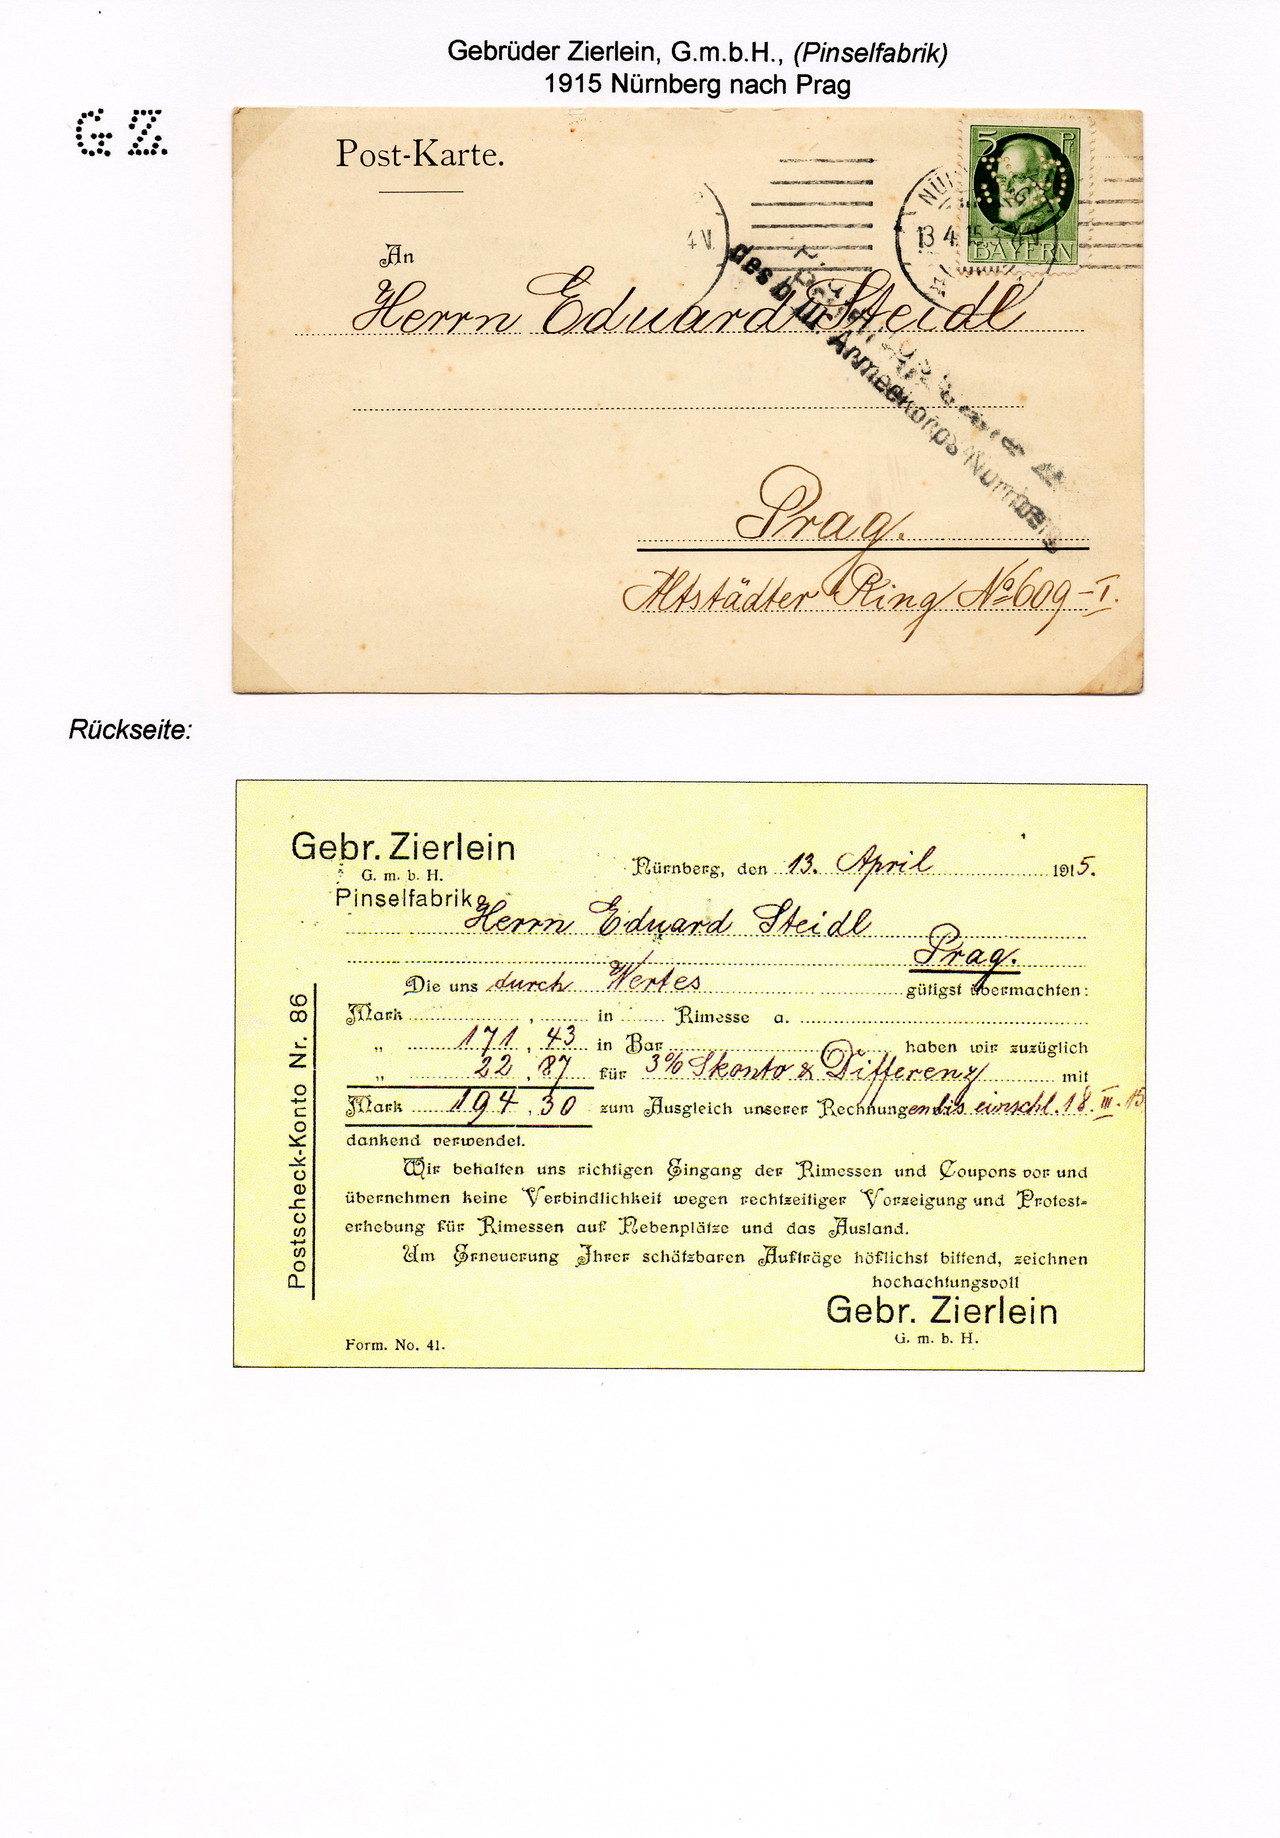 Gebrüder Zierlein, G.m.b.H., (Pinselfabrik)
1915 Nürnberg nach Prag
GZ
Post-Karte.
5 Pf
BAYERN
13 4 15
4 N.
An
Herrn Eduard Steidl
des b. III. Armeekorps Nürnberg
Prag.
Altstädter Ring No 609-I.
Rückseite:
Gebr. Zierlein
G. m. b. H.
Pinselfabrik
Nürnberg, den 13. April 1915.
Herrn Eduard Steidl
Prag.
Die uns durch Wertes gütigst übermachten:
Mark , in Rimesse a.
„ 171, 43 in Bar haben wir zuzüglich
„ 22, 87 für 3% Skonto & Differenz mit
Mark 194, 30 zum Ausgleich unserer Rechnungen bis einschl. 18. III. 15
dankend verwendet.
Wir behalten uns richtigen Eingang der Rimessen und Coupons vor und
übernehmen keine Verbindlichkeit wegen rechtzeitiger Vorzeigung und Protest-
erhebung für Rimessen auf Nebenplätze und das Ausland.
Um Erneuerung Ihrer schätzbaren Aufträge höflichst bittend, zeichnen
hochachtungsvoll
Gebr. Zierlein
G. m. b. H.
Form. No. 41.
Postscheck-Konto Nr. 86